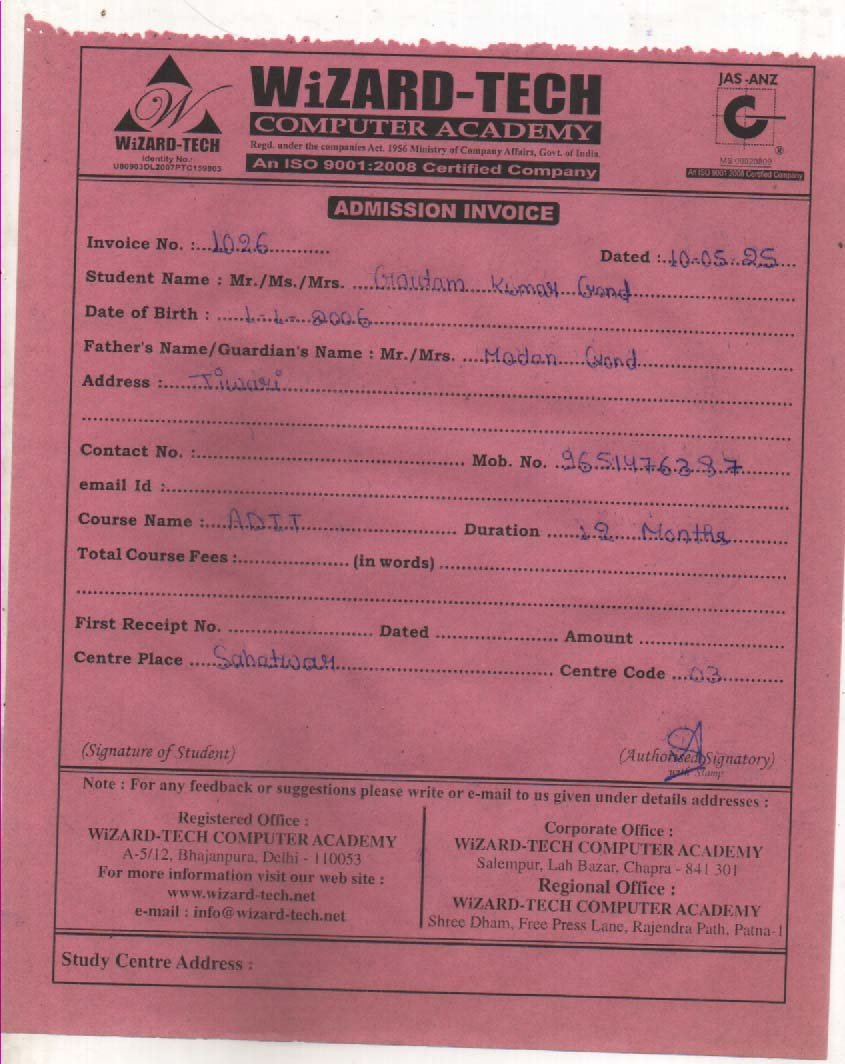 WiZARD-TECH
Identity No.:
U80903DL2007PTC159803
WiZARD-TECH
COMPUTER ACADEMY
Regd. under the companies Act. 1956 Ministry of Company Affairs, Govt. of India.
An ISO 9001:2008 Certified Company
JAS-ANZ
®
An ISO 9001:2008 Certified Company
ADMISSION INVOICE
Invoice No. : 1026 Dated : 10-05-25
Student Name : Mr./Ms./Mrs. Gautam Kumar Gond
Date of Birth : 1-1-2006
Father's Name/Guardian's Name : Mr./Mrs. Madan Gond
Address : Tiwari
Contact No. : Mob. No. 9651476387
email Id :
Course Name : ADIT Duration 12 Months
Total Course Fees : (in words)
First Receipt No. Dated Amount
Centre Place Sahatwar Centre Code 03
(Signature of Student) (Authorised Signatory)
with Stamp
Note : For any feedback or suggestions please write or e-mail to us given under details addresses :
Registered Office :
WiZARD-TECH COMPUTER ACADEMY
A-5/12, Bhajanpura, Delhi - 110053
For more information visit our web site :
www.wizard-tech.net
e-mail : info@wizard-tech.net
Corporate Office :
WiZARD-TECH COMPUTER ACADEMY
Salempur, Lah Bazar, Chapra - 841 301
Regional Office :
WiZARD-TECH COMPUTER ACADEMY
Shree Dham, Free Press Lane, Rajendra Path, Patna-1
Study Centre Address :